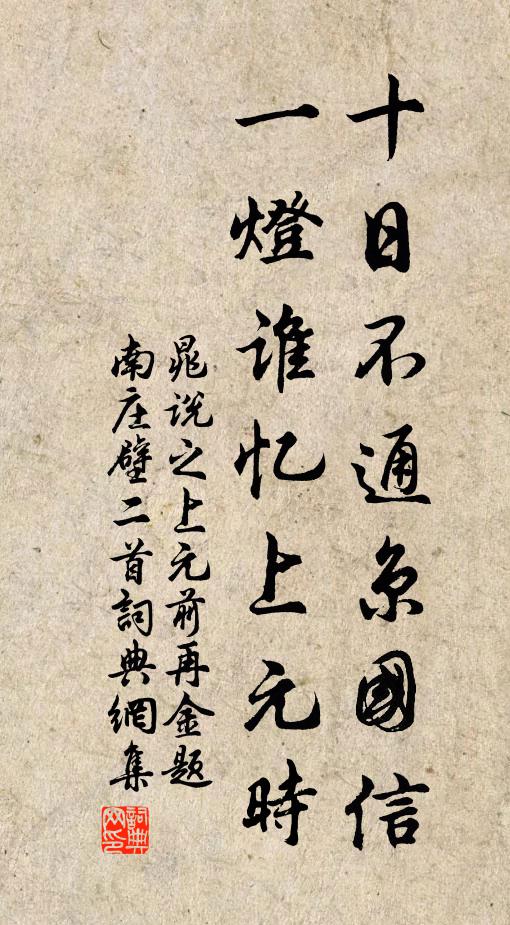 十日不通京國信
一燈谁忆上元時
晁说之上元前再金题
南庄壁二首詞典網集
詞典网印